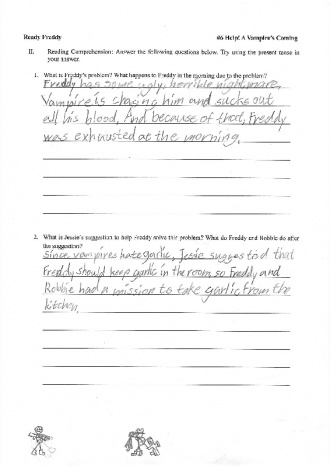 Ready Freddy #6 Help! A Vampire's Coming
II. Reading Comprehension: Answer the following questions below. Try using the present tense in
your answer.
1. What is Freddy's problem? What happens to Freddy in the morning due to the problem?
Freddy has some ugly, horrible nightmare,
Vampire is chasing him and sucks out
all his blood, And because of that, Freddy
was exhausted at the morning.
2. What is Jessie's suggestion to help Freddy solve this problem? What do Freddy and Robbie do after
the suggestion?
Since vampires hate garlic, Jesie suggestod that
Freddy should keep garlic in the room so Freddy and
Robbie had a mission to take garlic from the
kitchen.